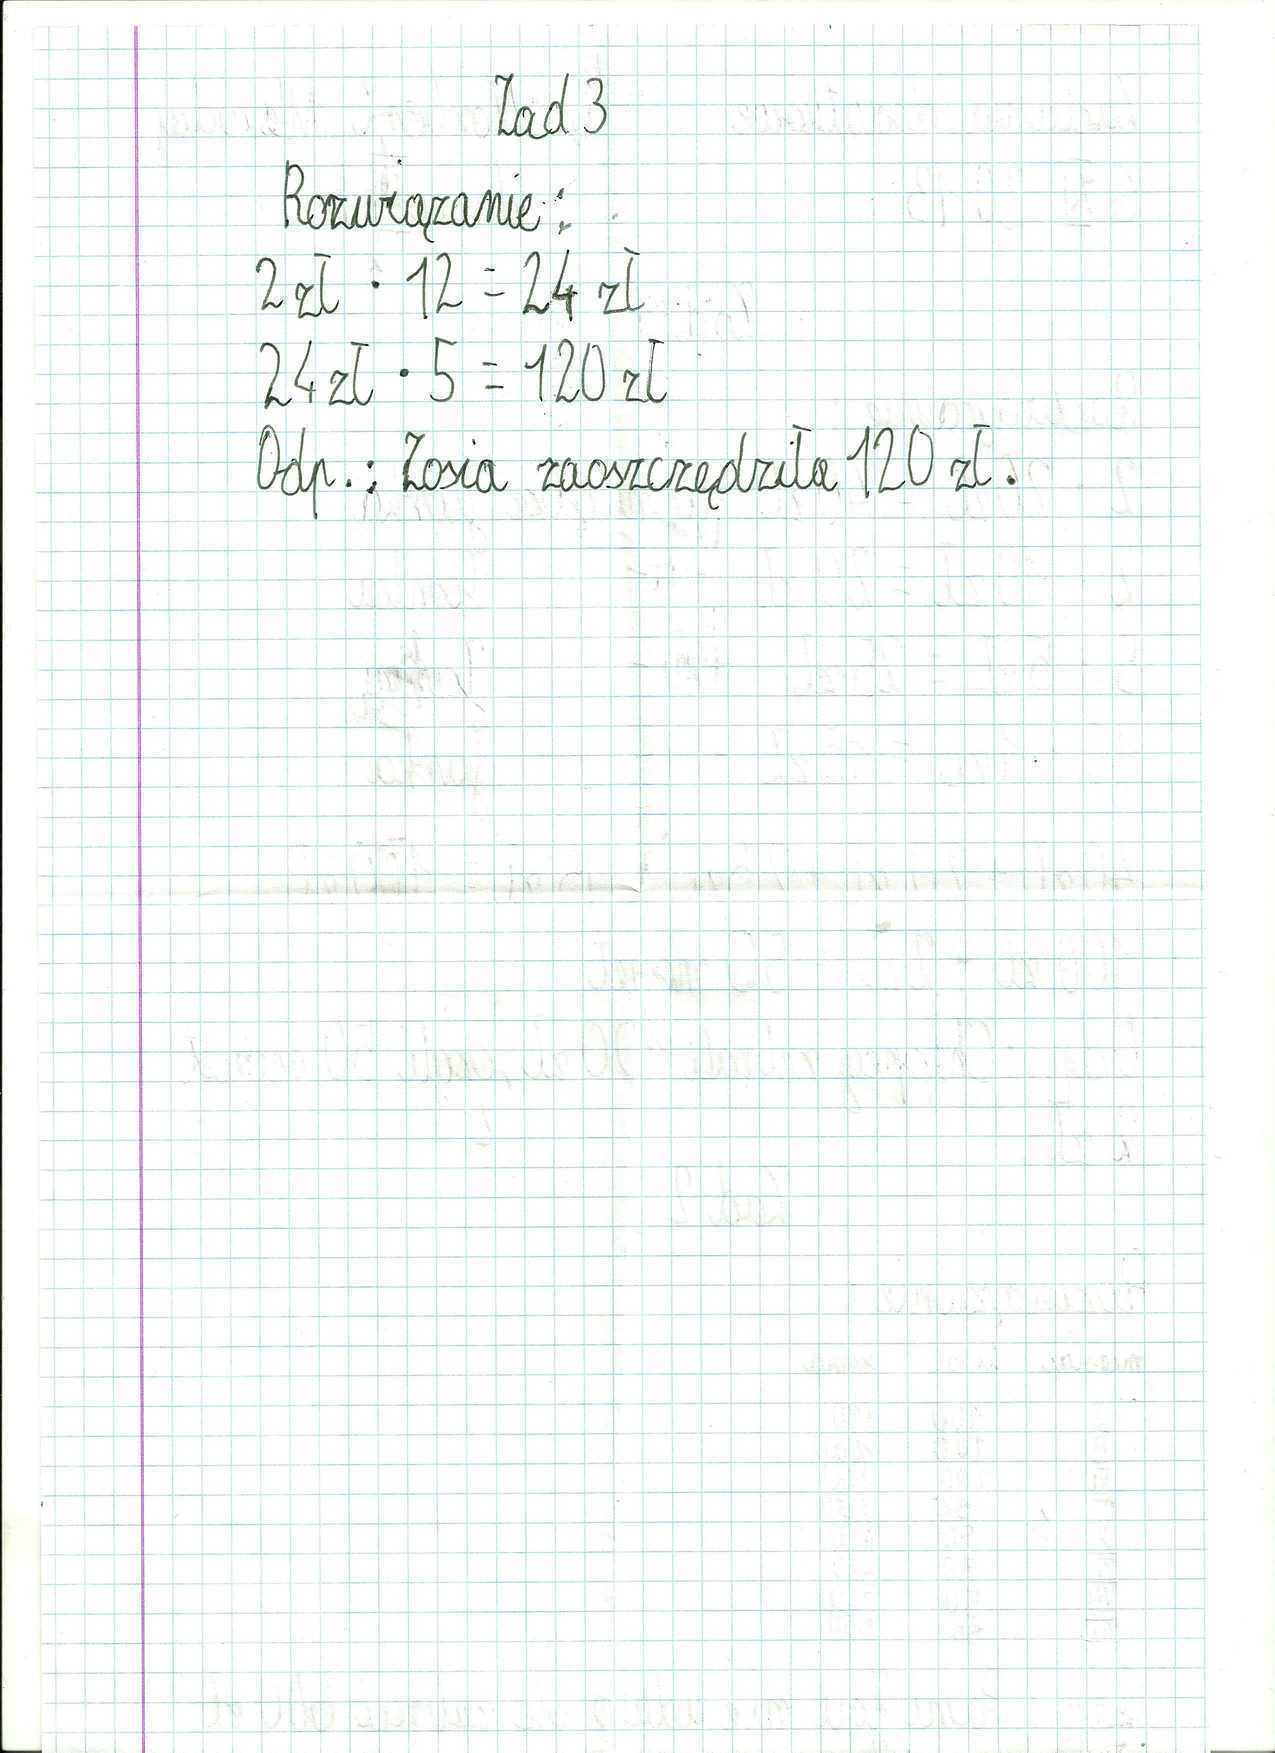 Zad 3
Rozwiązanie:
2 zł · 12 = 24 zł
24 zł · 5 = 120 zł
Odp.: Zosia zaoszczędziła 120 zł.